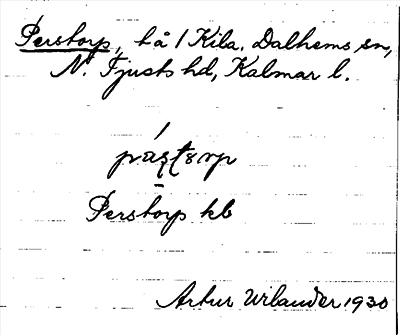 Perstorp, bå / Kila. Dalhems sn,
N. Tjusts hd, Kalmar l.
Perstorp kb
Artur Wilander 1930